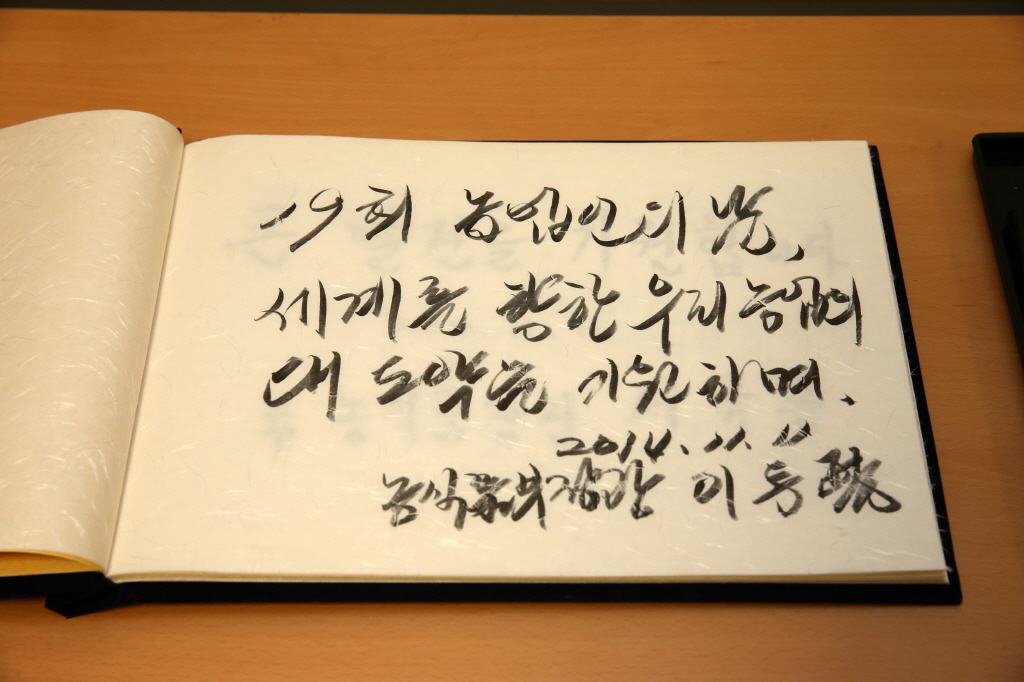 19회 농업인의 날,
세계를 향한 우리 농업의
대 도약을 기원하며.
2014. 11. 11
농식품부장관 이동필